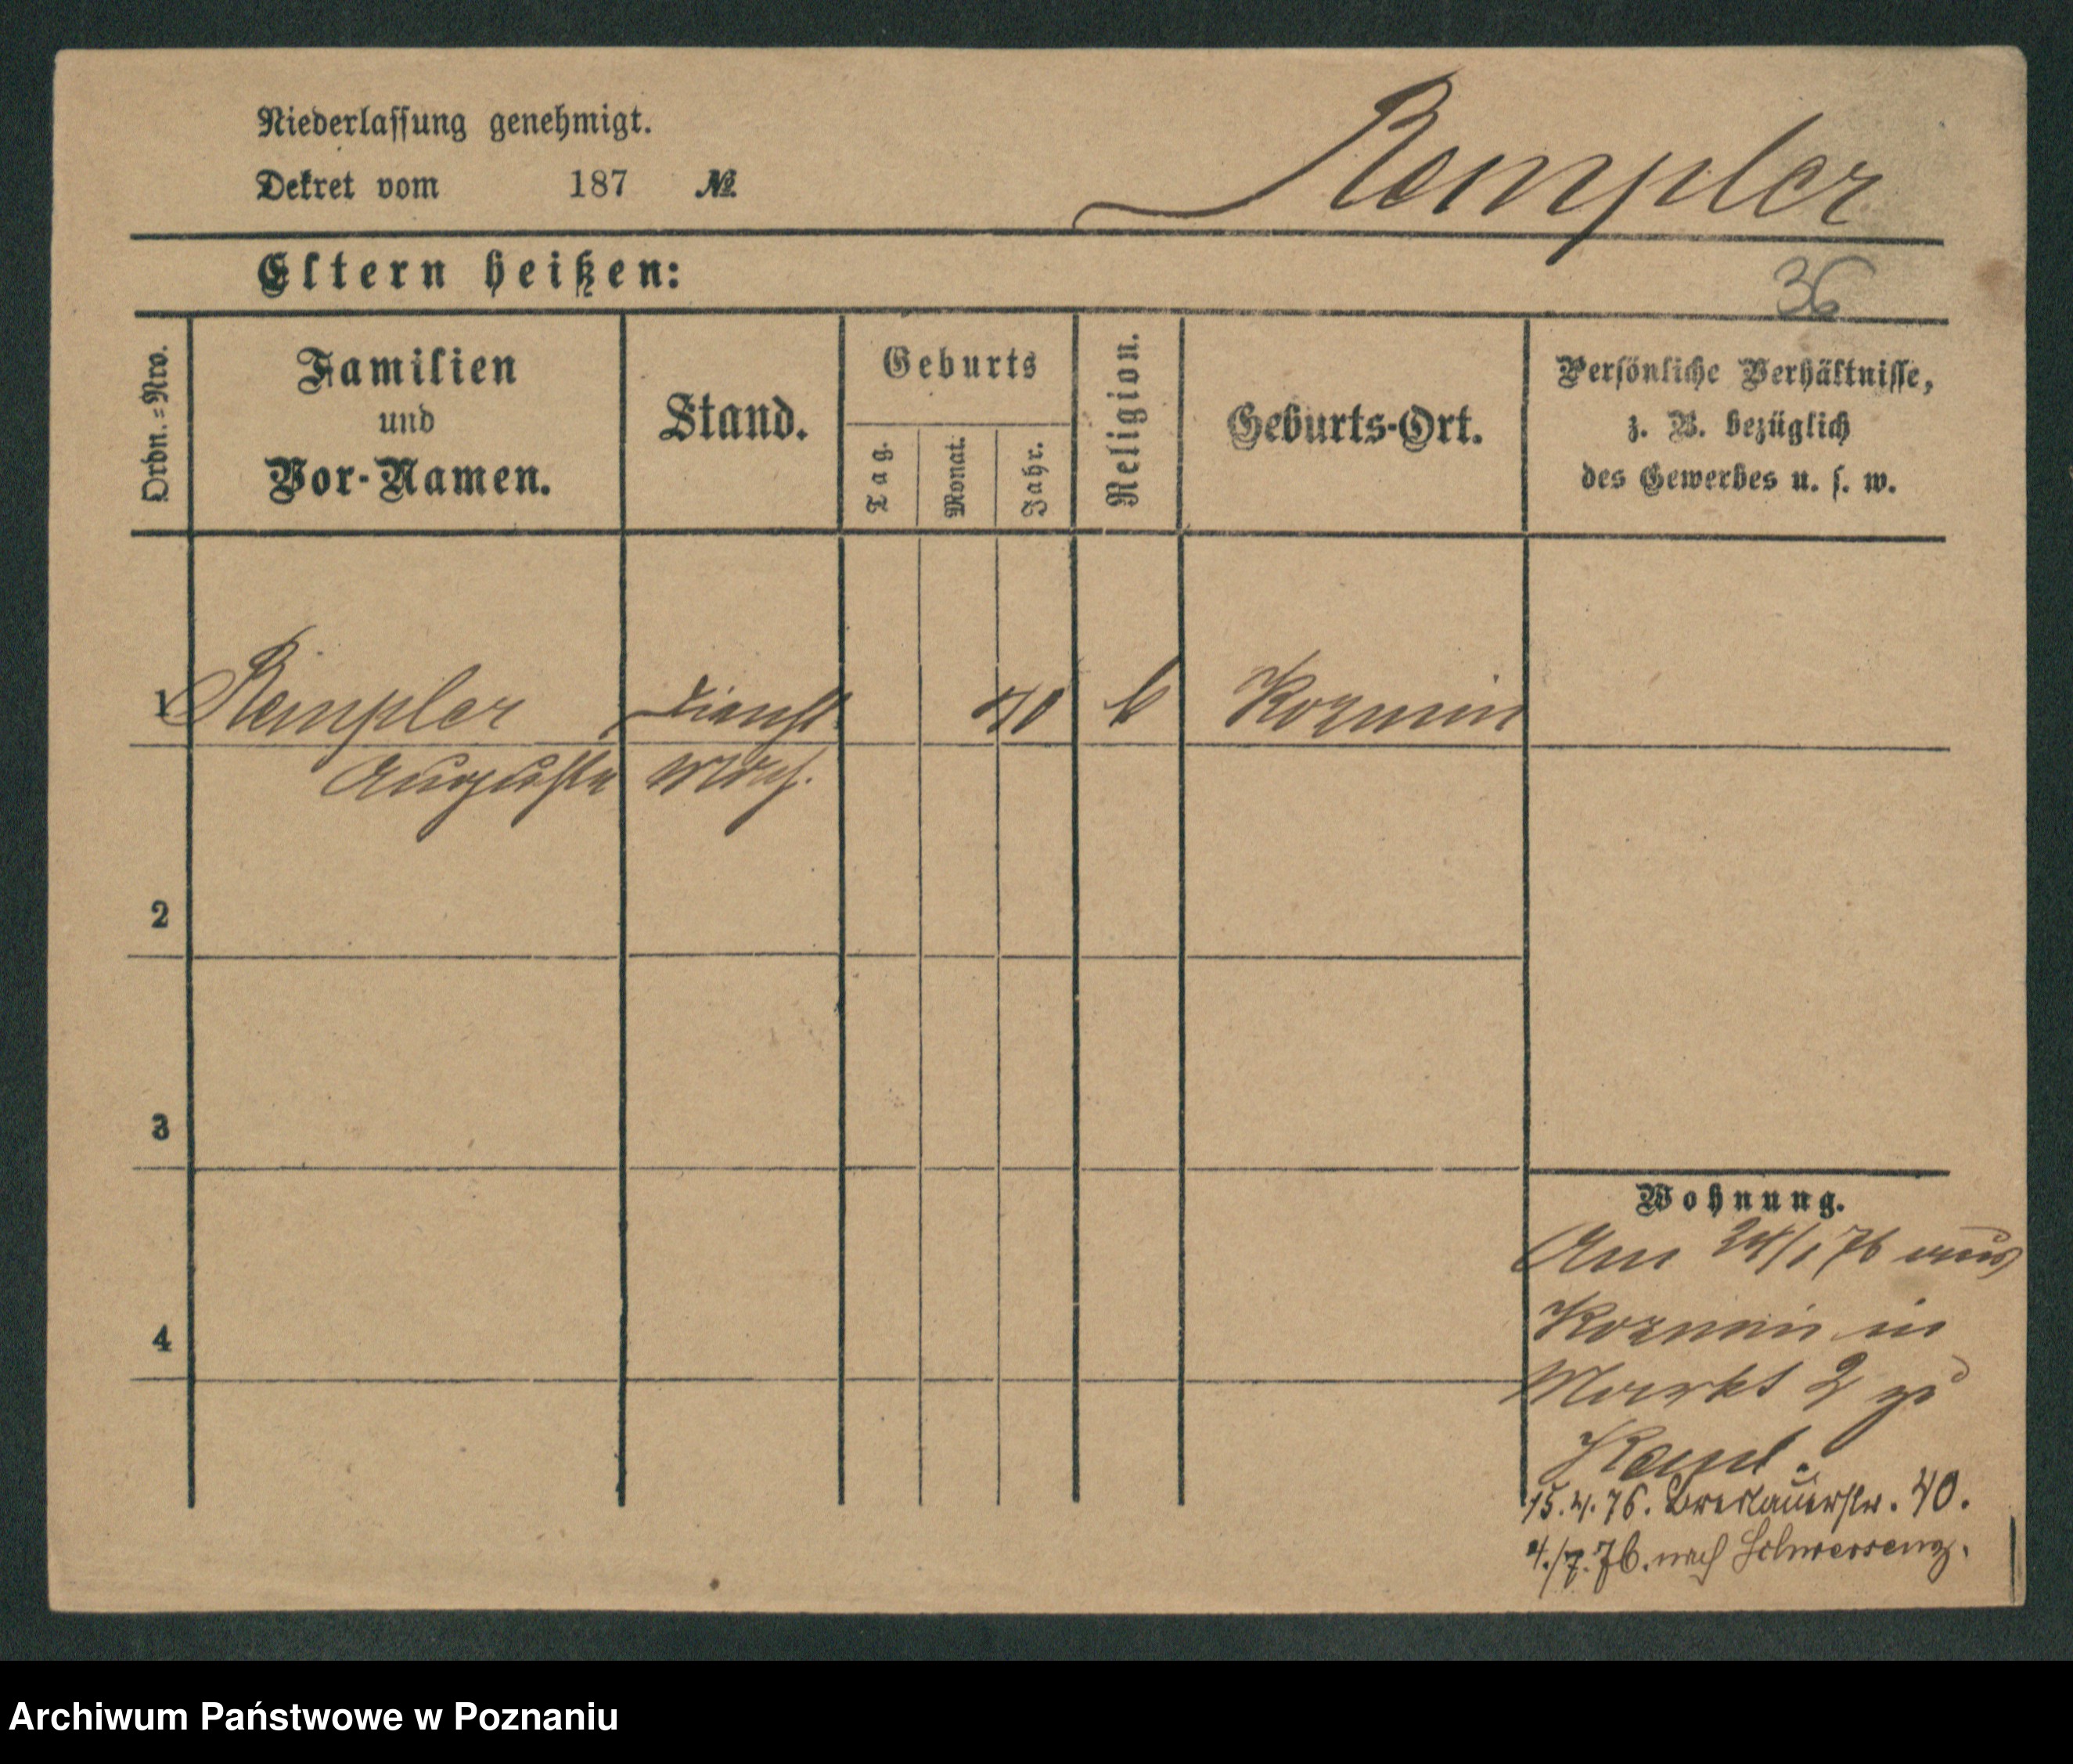 Niederlassung genehmigt.
Dekret vom 187 №
Rempler
Eltern heißen:
36
Ordn.=Nro.
Familien
und
Vor-Namen.
Stand.
Geburts
Tag.
Monat.
Jahr.
Religion.
Geburts-Ort.
Persönliche Verhältnisse,
z. B. bezüglich
des Gewerbes u. s. w.
1 Rempler Dienst Kozmin
Auguste
2
3
4
Wohnung.
Am 24/1 76 aus
Kozmin in
Markt 2 zu
15.4.76. Breslauerstr. 40.
4./7.76. nach Schwersenz.
Archiwum Państwowe w Poznaniu